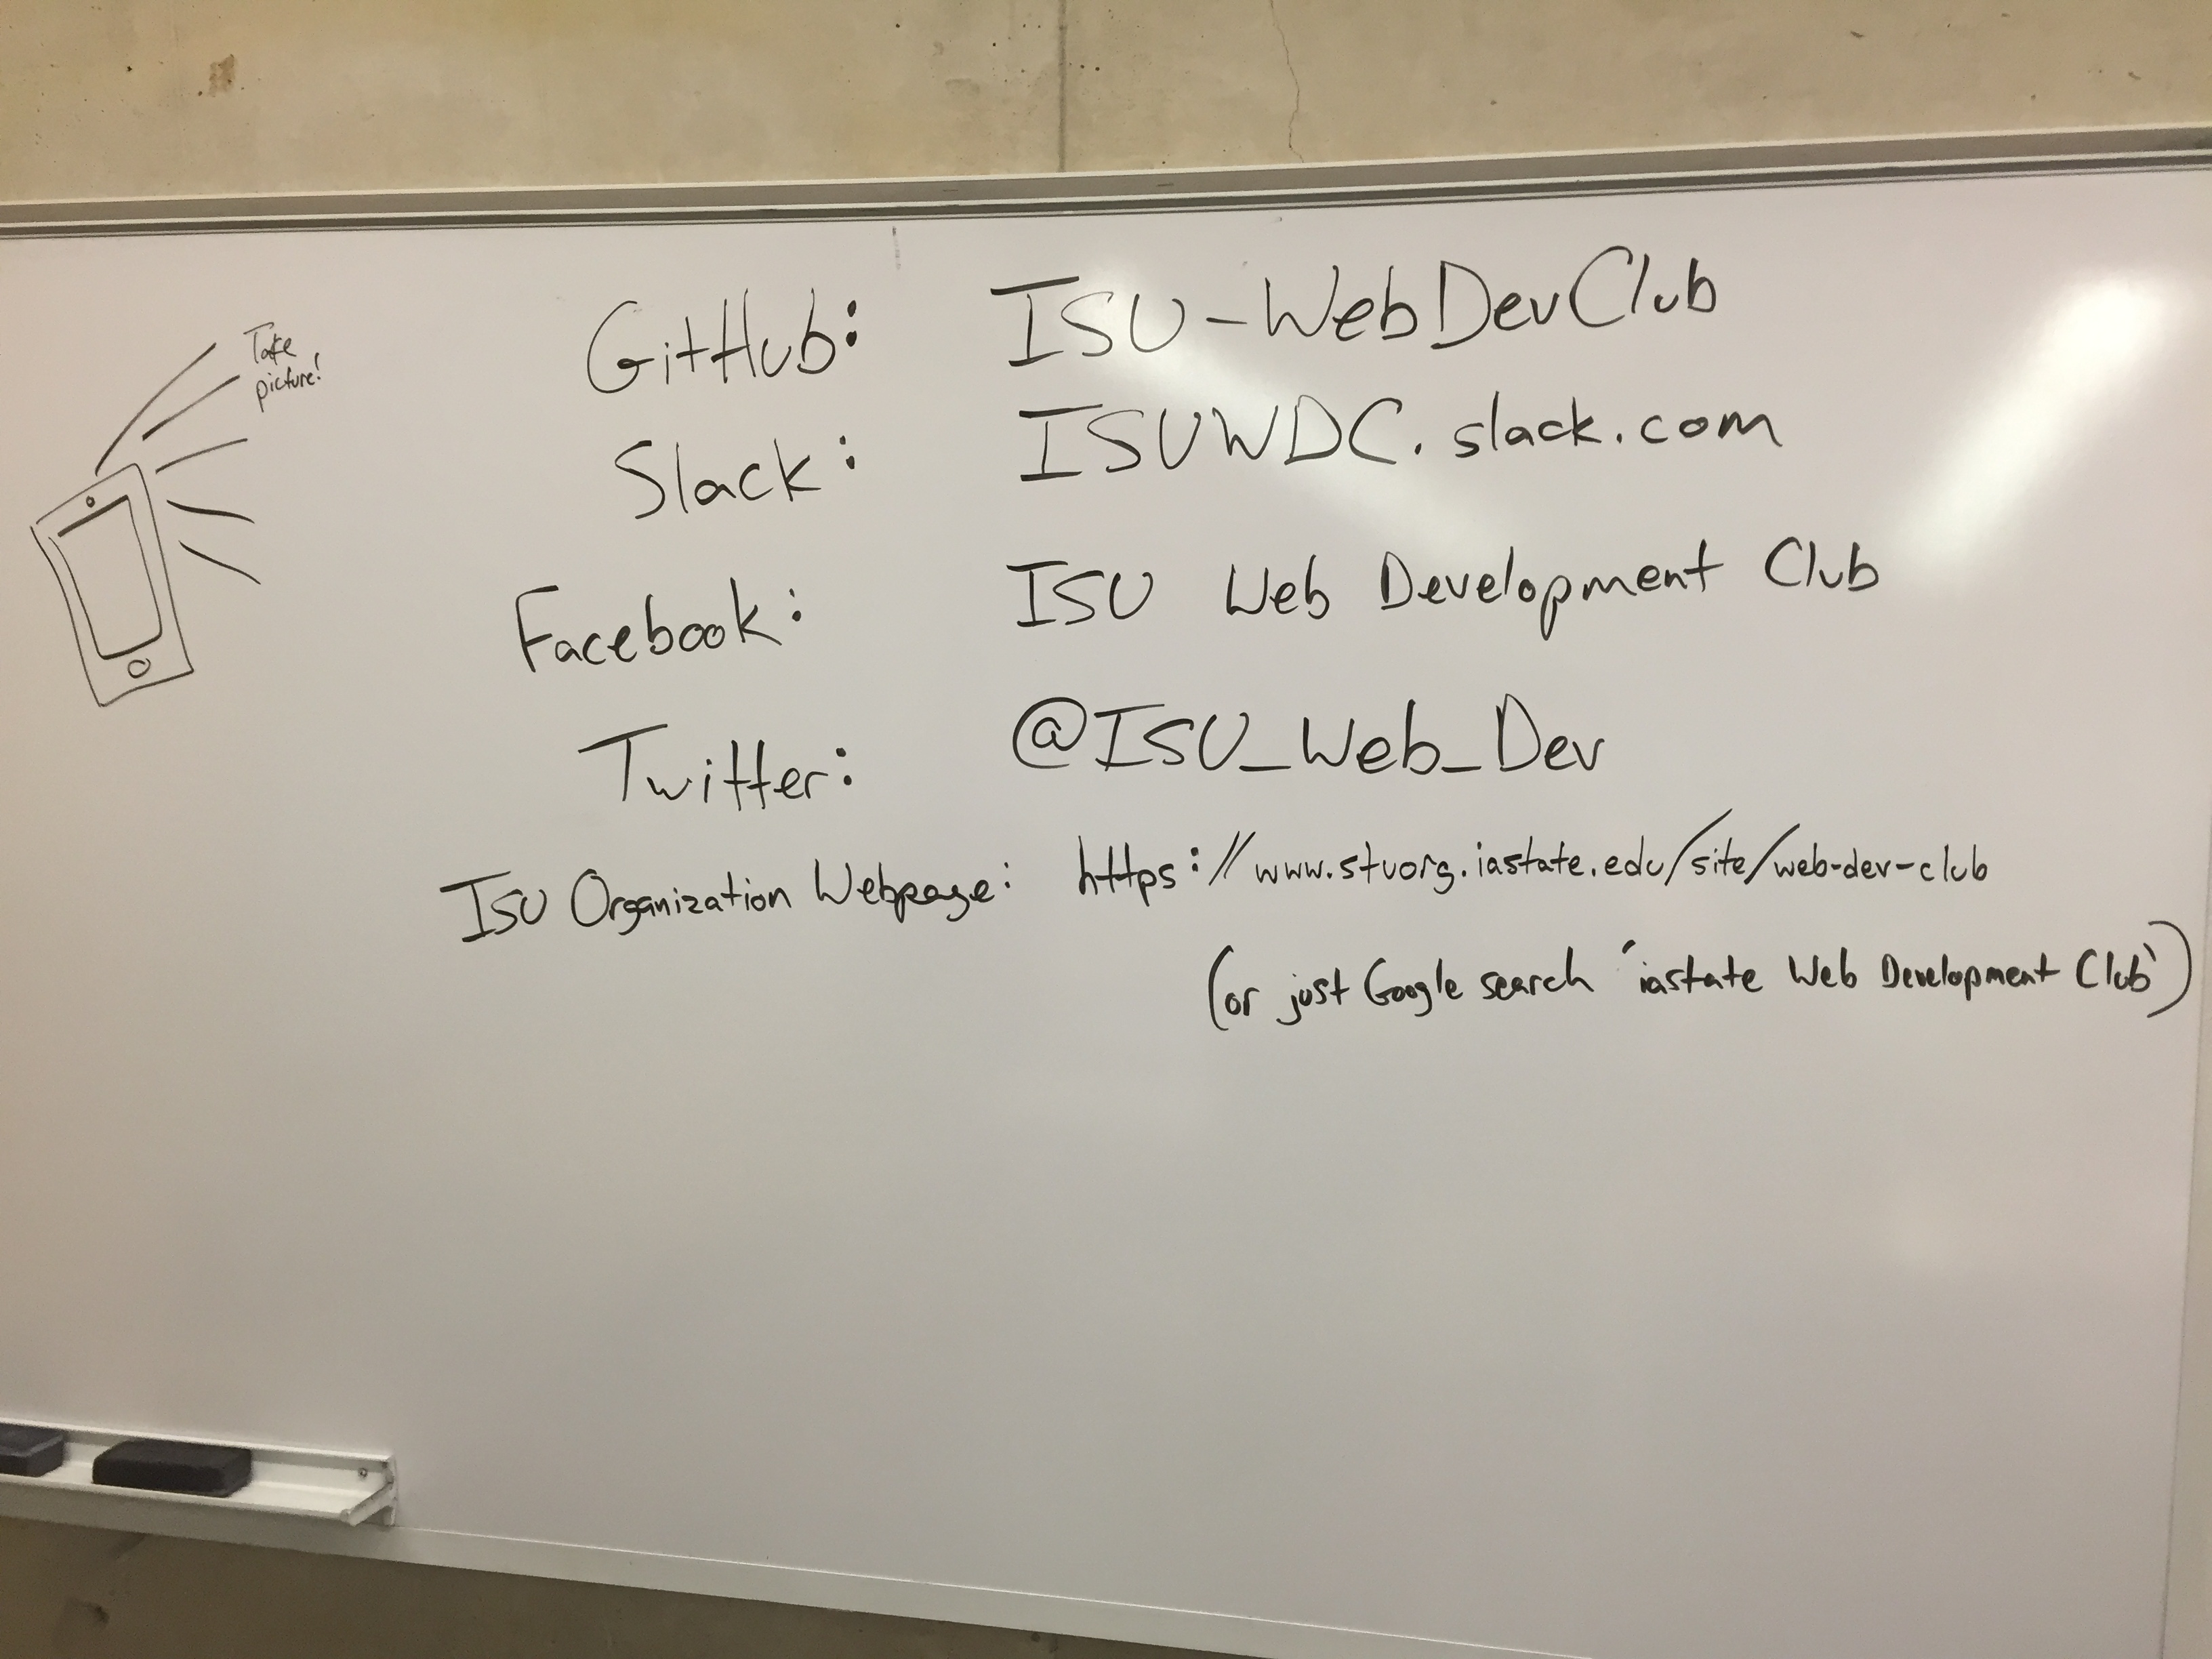 Take
picture!
GitHub: ISU-WebDevClub
Slack: ISUWDC.slack.com
Facebook: ISU Web Development Club
Twitter: @ISU_Web_Dev
ISU Organization Webpage: https://www.stuorg.iastate.edu/site/web-dev-club
(or just Google search 'iastate Web Development Club')